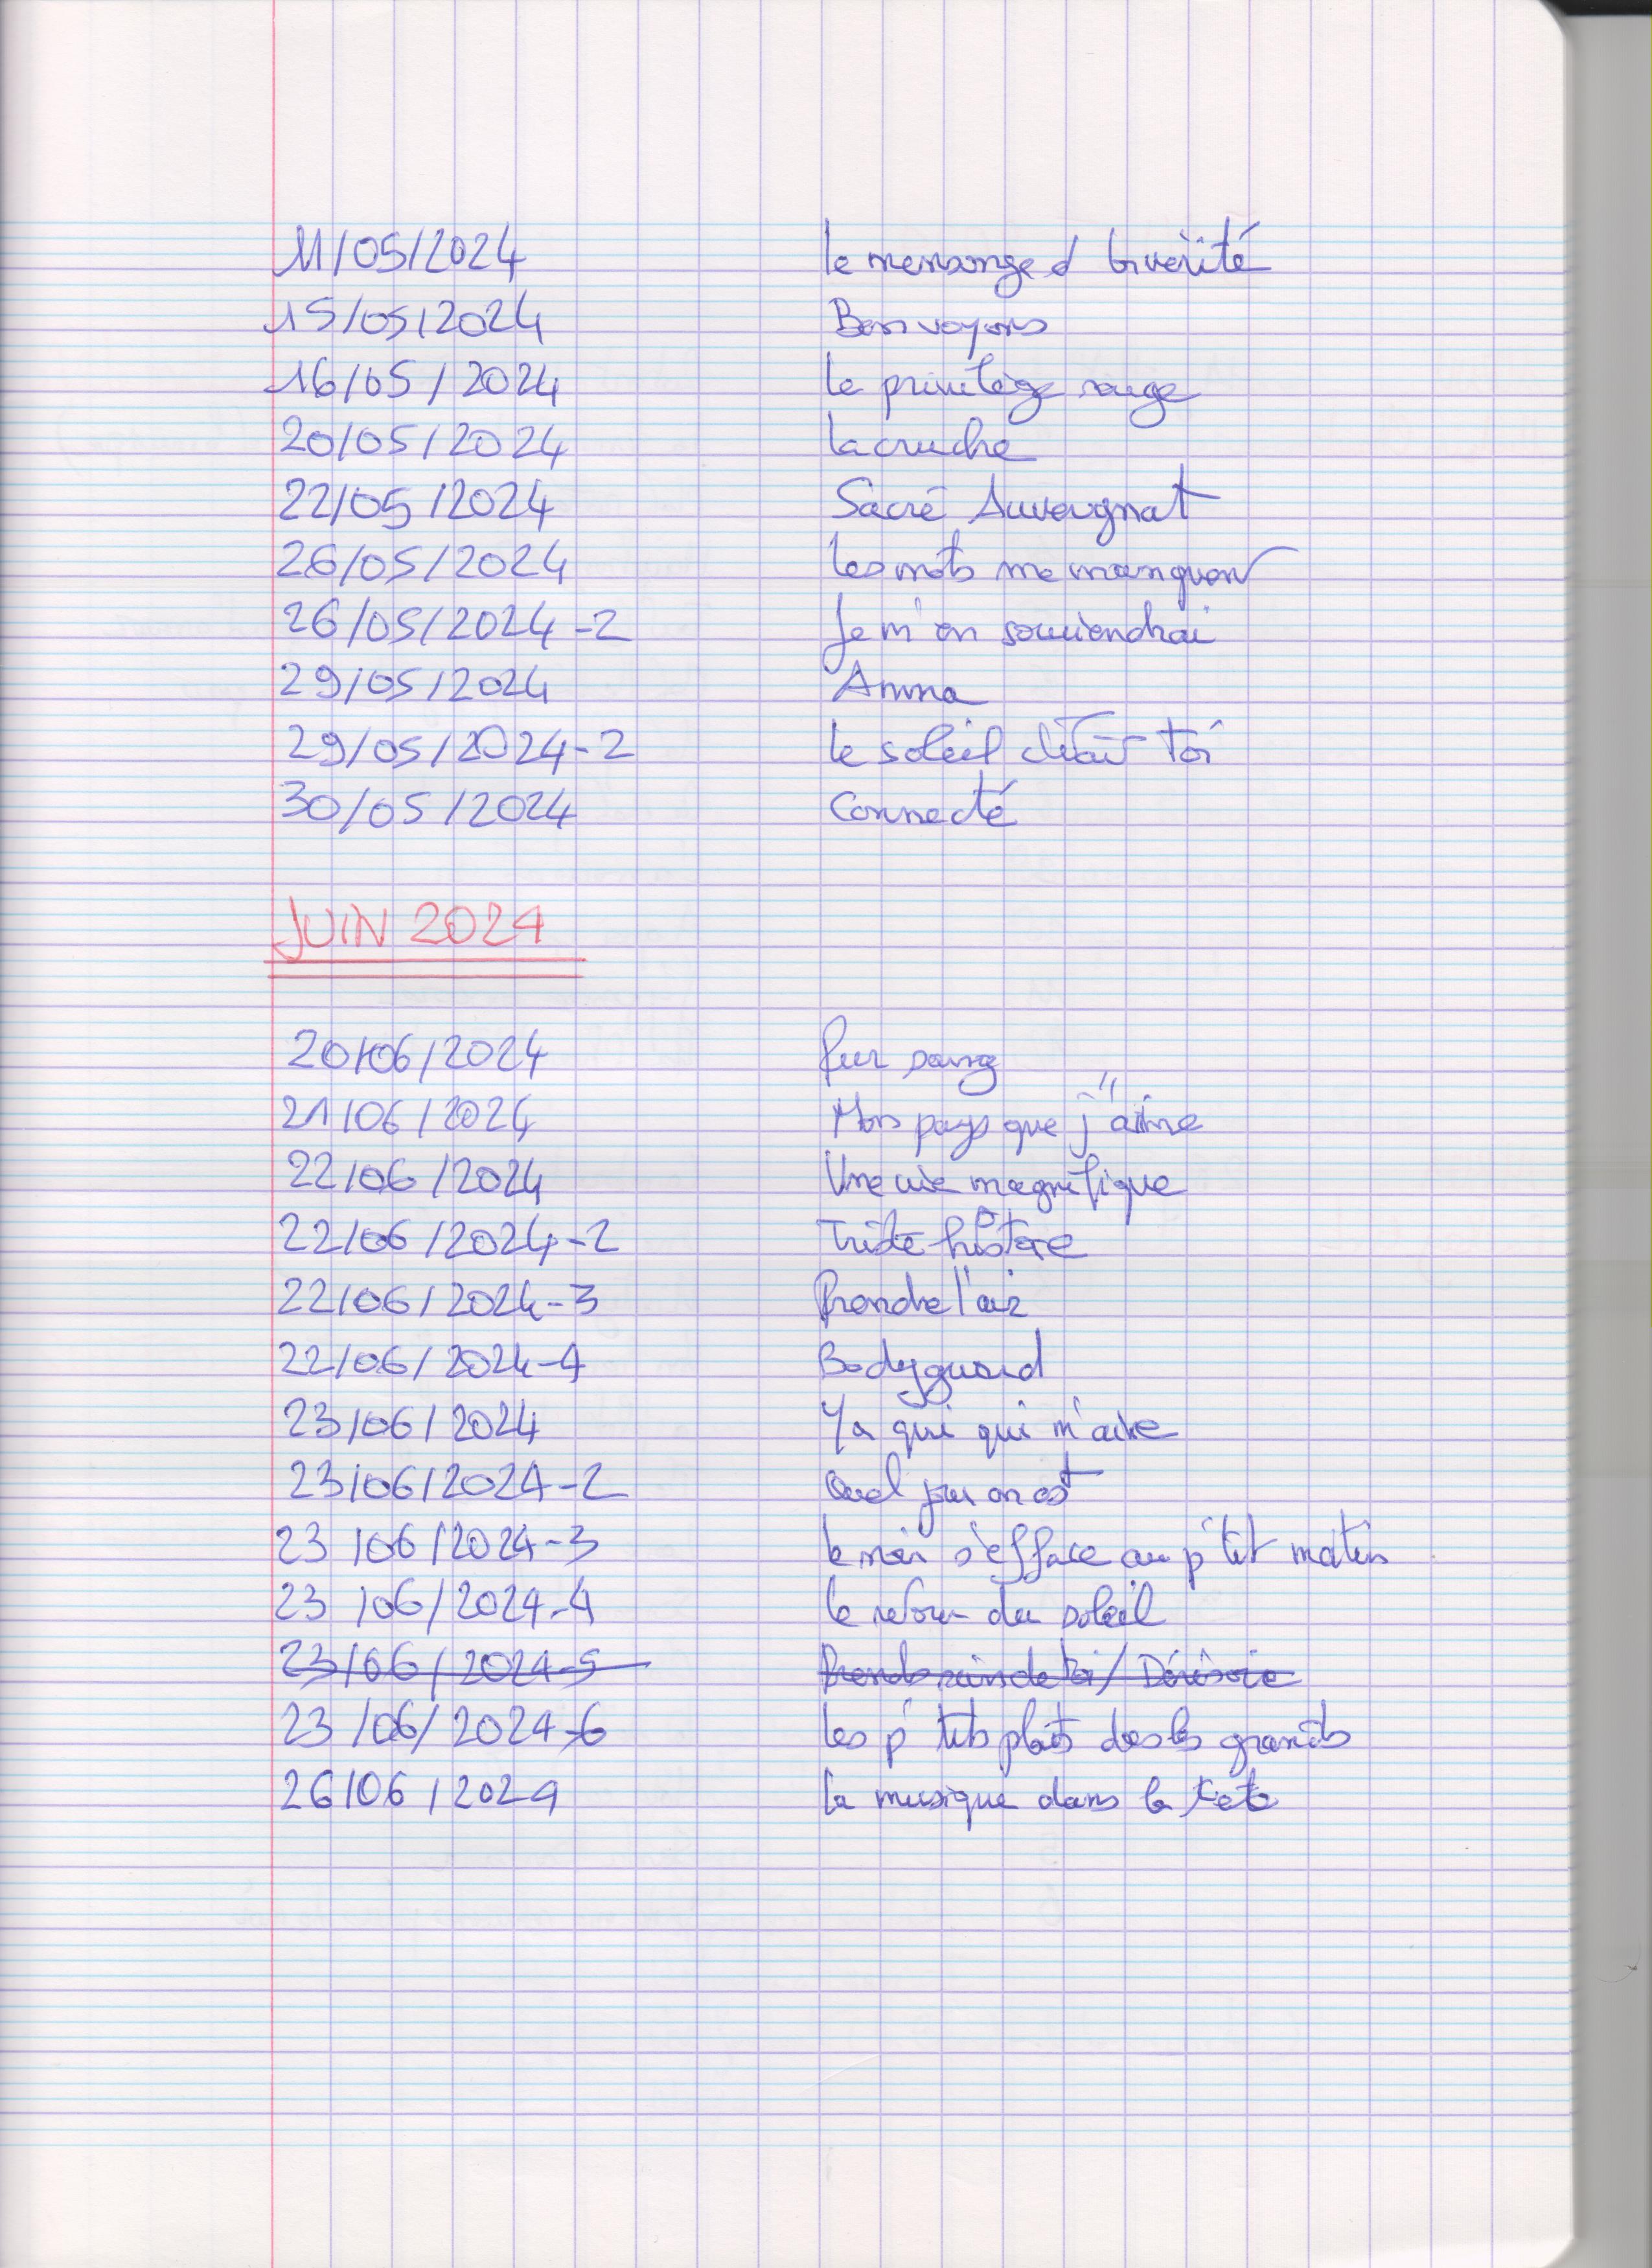 11/05/2024 le mensonge et la vérité
15/05/2024 Bon voyons
16/05/2024 le privilège rouge
20/05/2024 la cruche
22/05/2024 Sacré Auvergnat
26/05/2024 les mots me manquent
26/05/2024-2 Je m'en souviendrai
29/05/2024 Anna
29/05/2024-2 le soleil c'était toi
30/05/2024 Connecté
JUIN 2024
20/06/2024 Pur sang
21/06/2024 Mon pays que j'"aime
22/06/2024 Une vie magnifique
22/06/2024-2 Triste histoire
22/06/2024-3 Prendre l'air
22/06/2024-4 Bodyguard
23/06/2024 Ya qui qui m'aime
23/06/2024-2 Quel jour on est
23/06/2024-3 le noir s'efface au p'tit matin
23/06/2024-4 le retour du soleil
23/06/2024-5 Prends soin de toi / Dérisoire
23/06/2024-6 les p'tits plats des les grands
26/06/2024 la musique dans la tête